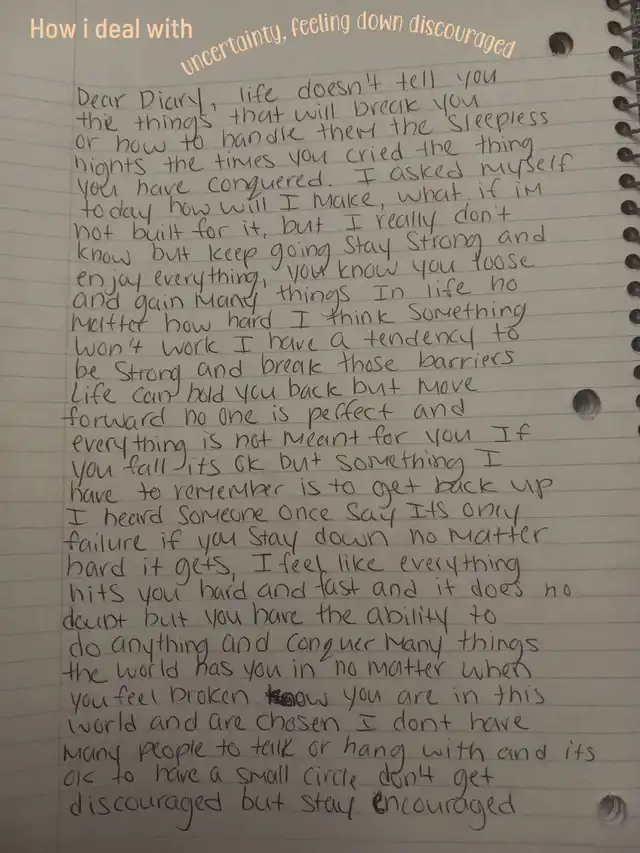 How i deal with
uncertainty, feeling down discouraged
Dear Diary, life doesn't tell you
the things that will break you
or how to handle them the sleepless
nights the times you cried the thing
you have conquered. I asked myself
today how will I make, what if im
not built for it, but I really don't
know but keep going stay strong and
enjoy everything, you know you loose
and gain many things In life no
matter how hard I think something
won't work I have a tendency to
be strong and break those barriers
Life can hold you back but move
forward no one is perfect and
everything is not meant for you If
you fall its ok but something I
have to remember is to get back up
I heard someone once say Its only
failure if you stay down no matter
hard it gets, I feel like everything
hits you hard and fast and it does no
doubt but you have the ability to
do anything and conquer many things
the world has you in no matter when
you feel broken know you are in this
world and are chosen I dont have
many people to talk or hang with and its
ok to have a small circle don't get
discouraged but stay encouraged